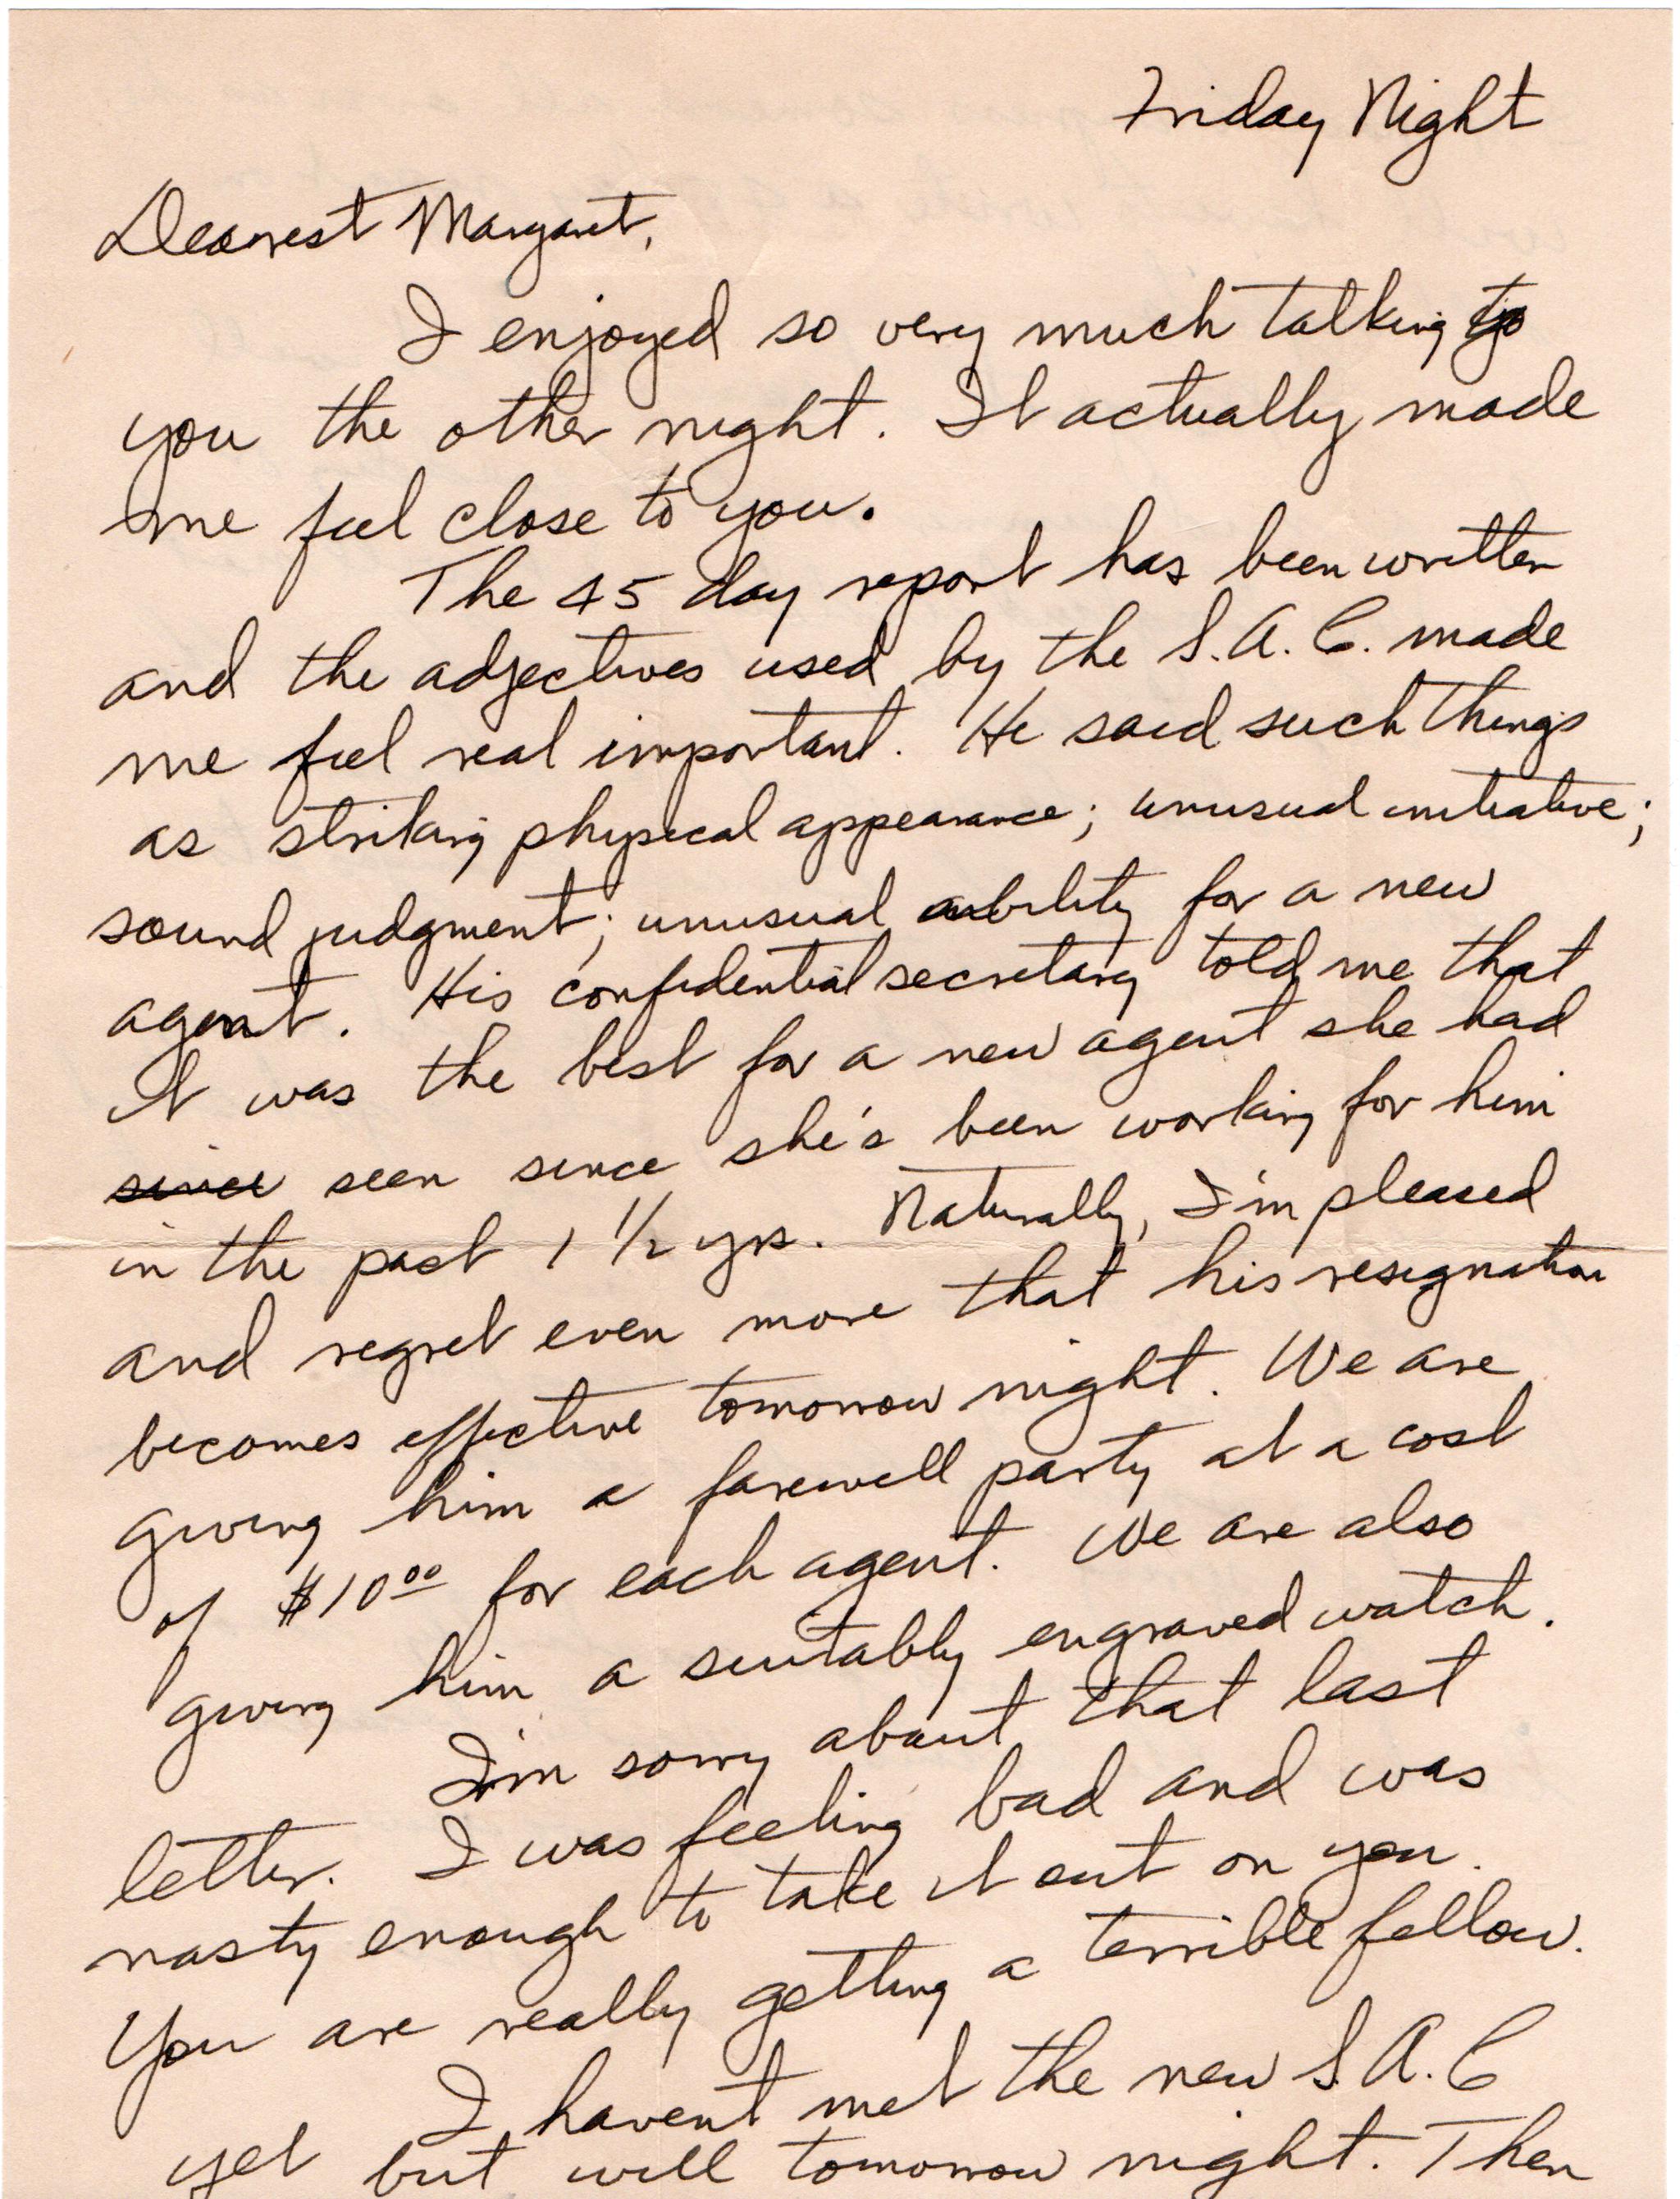 Friday Night
Dearest Margaret,
I enjoyed so very much talking to
you the other night. It actually made
me feel close to you.
The 45 day report has been written
and the adjectives used by the S.A.C. made
me feel real important. He said such things
as striking physical appearance; unusual initiative;
sound judgment; unusual ability for a new
agent. His confidential secretary told me that
it was the best for a new agent she had
since seen since she's been working for him
in the past 1 1/2 yrs. Naturally, I'm pleased
and regret even more that his resignation
becomes effective tomorrow night. We are
giving him a farewell party at a cost
of $10.00 for each agent. We are also
giving him a suitably engraved watch.
I'm sorry about that last
letter. I was feeling bad and was
nasty enough to take it out on you.
You are really getting a terrible fellow.
I havent met the new S.A.C
yet but will tomorrow night. Then